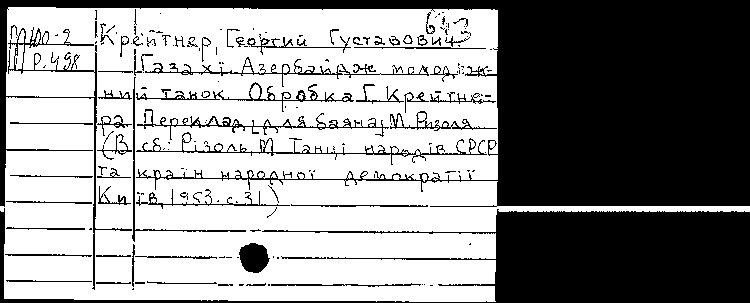 643
М100-2 Крейтнер, Георгий Густавович.
Р.498 Газахі. Азербайдж молодіж-
ний танок. Обробка Г. Крейтне-
ра. Переклад [для баяна] М. Різоля
(В сб.: Різоль, М. Танці народів СРСР
та країн народної демократії
Київ, 1953. с.31.)